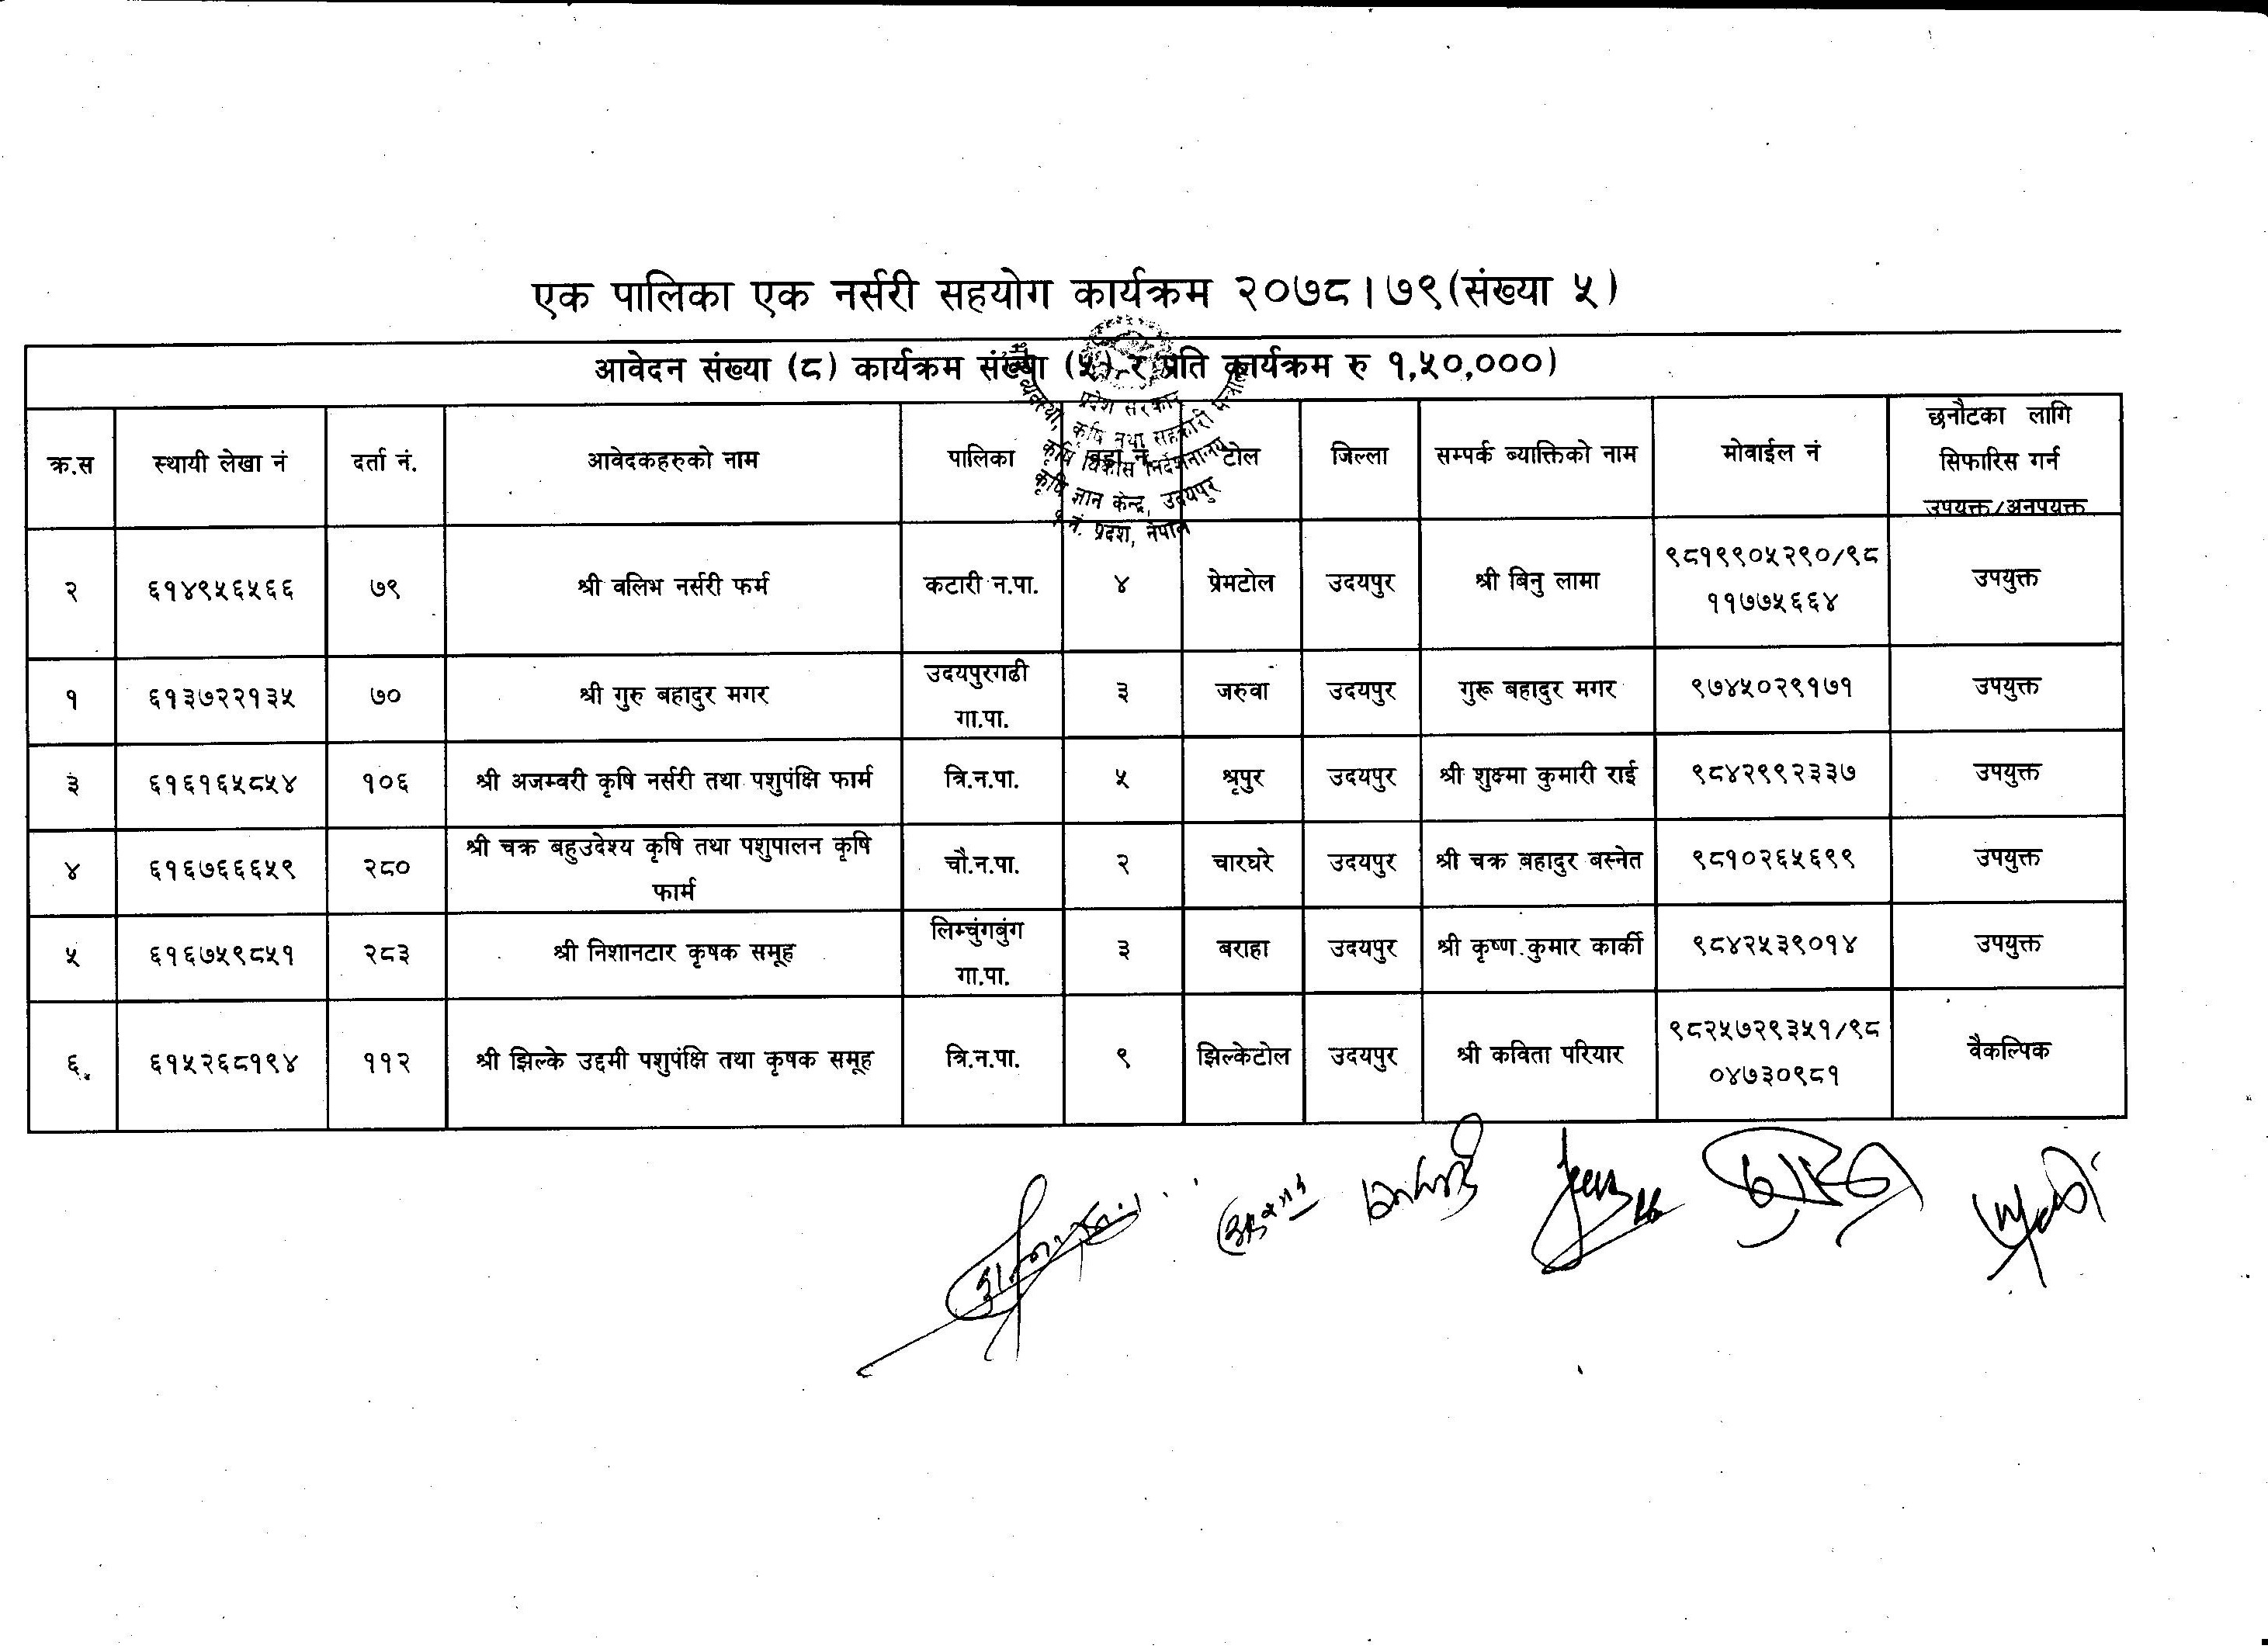 एक पालिका एक नर्सरी सहयोग कार्यक्रम २०७८।७९(संख्या ५)
आवेदन संख्या (८) कार्यक्रम संख्या (५) र प्रति कार्यक्रम रु १,५०,०००)
प्रदेश सरकार
कृषि तथा सहकारी मन्त्रालय
कृषि विकास निर्देशनालय
कृषि ज्ञान केन्द्र, उदयपुर
१ नं. प्रदेश, नेपाल
क्र.स स्थायी लेखा नं दर्ता नं. आवेदकहरुको नाम पालिका वडा नं टोल जिल्ला सम्पर्क ब्याक्तिको नाम मोवाईल नं छनौटका लागि
सिफारिस गर्न
उपयक्त/अनपयक्त
२ ६१४९५६५६६ ७९ श्री वलिभ नर्सरी फर्म कटारी न.पा. ४ प्रेमटोल उदयपुर श्री बिनु लामा ९८१९९०५२९०/९८
११७७५६६४ उपयुक्त
१ ६१३७२२१३५ ७० श्री गुरु बहादुर मगर उदयपुरगढी
गा.पा. ३ जरुवा उदयपुर गुरू बहादुर मगर ९७४५०२९१७१ उपयुक्त
३ ६१६१६५८५४ १०६ श्री अजम्वरी कृषि नर्सरी तथा पशुपंक्षि फार्म त्रि.न.पा. ५ श्रृपुर उदयपुर श्री शुक्ष्मा कुमारी राई ९८४२९९२३३७ उपयुक्त
४ ६१६७६६६५९ २८० श्री चक्र बहुउदेश्य कृषि तथा पशुपालन कृषि
फार्म चौ.न.पा. २ चारघरे उदयपुर श्री चक्र बहादुर बस्नेत ९८१०२६५६९९ उपयुक्त
५ ६१६७५९८५१ २८३ श्री निशानटार कृषक समूह लिम्चुंगबुंग
गा.पा. ३ बराहा उदयपुर श्री कृष्ण कुमार कार्की ९८४२५३९०१४ उपयुक्त
६ ६१५२६८१९४ ११२ श्री झिल्के उद्दमी पशुपंक्षि तथा कृषक समूह त्रि.न.पा. ९ झिल्केटोल उदयपुर श्री कविता परियार ९८२५७२९३५१/९८
०४७३०९८१ वैकल्पिक